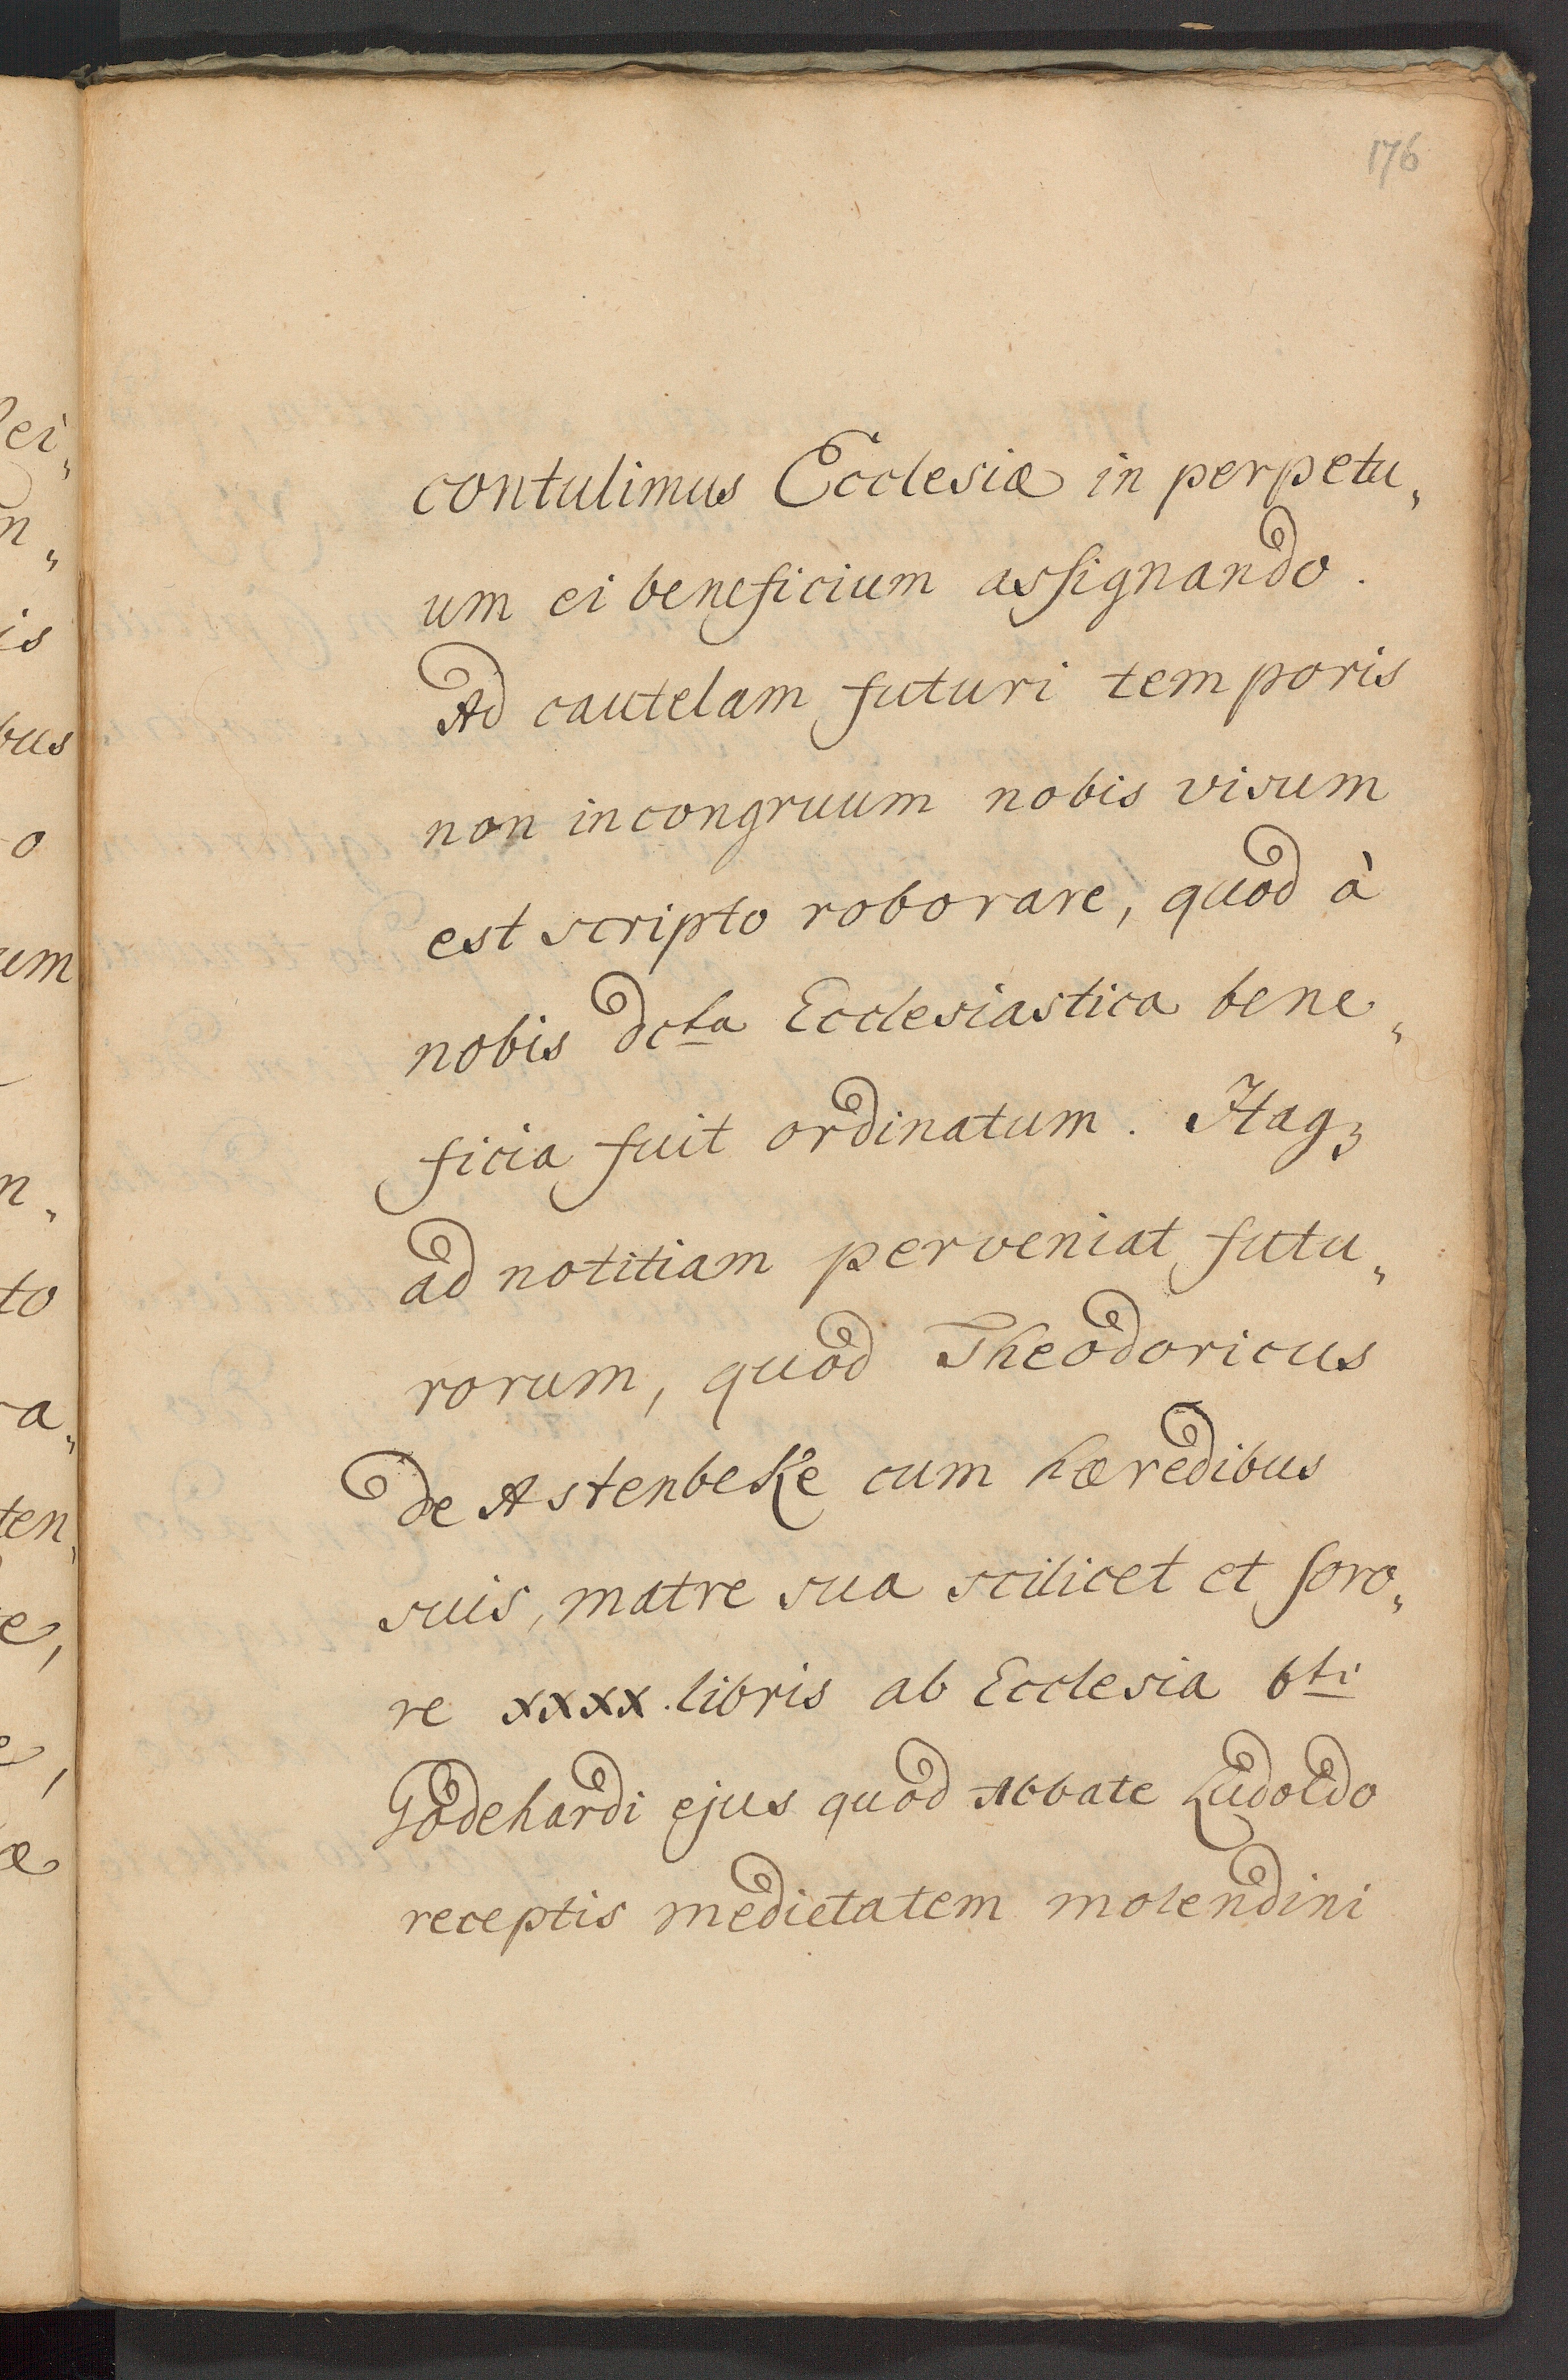 176
contulimus Ecclesiæ in perpetu„
um ei beneficium assignando.
Ad cautelam futuri temporis
non incongruum nobis visum
est scripto roborare, quod à
nobis dcta Ecclesiastica bene„
ficia fuit ordinatum. Itaqꝫ
ad notitiam perveniat futu„
rorum, quod Theodoricus
de Astenbeke cum hæredibus
suis, matre sua scilicet et soro„
re xxxx. libris ab Ecclesia bti
Godehardi ejus quod Abbate Ludoldo
receptis medietatem molendini